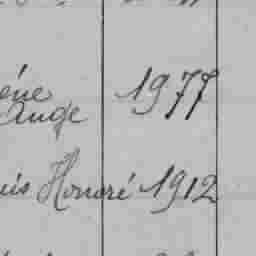 éne
Ange 1977
uis Honoré 1912